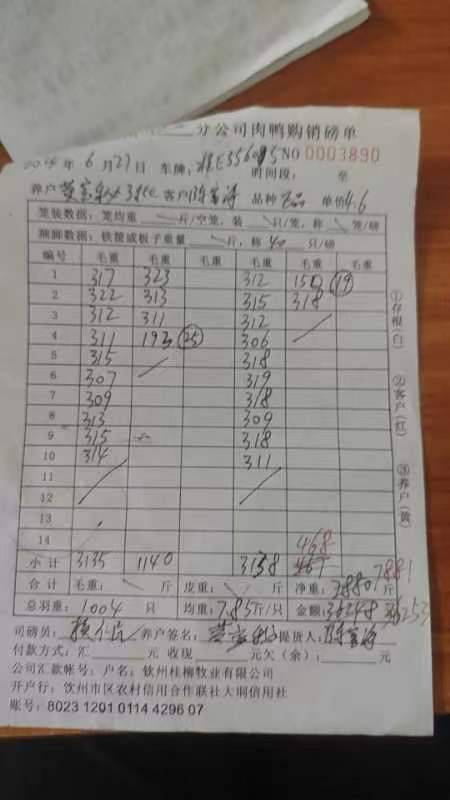 分公司肉鸭购销磅单
2014年6月27日 车牌: 桂E55605 NO 0003890
时间段: 至
养户 客户 品种 单价4.6
笼装数据: 笼均重 斤/空笼, 装 只/笼, 称 笼/磅
捆脚数据: 铁筐或板子重量 斤, 称40 只/磅
编号 毛重 毛重 毛重 毛重 毛重 毛重
1 317 323 312 150 19
2 322 313 315 318
3 312 311 312
4 311 193 25 306
5 315 318
6 307 319
7 309 318
8 313 309
9 315 318
10 314 311
11
12
13
14 468
小计 3135 1140 3138 467 7881
合计 毛重: 斤 皮重: 斤 净重: 7880斤
总羽重: 1004 只 均重: 7.85斤/只 金额: 36248 36253
司磅员: 养户签名: 提货人:
付款方式: 汇 元 收现 元欠(余): 元
公司汇款帐号: 户名: 钦州桂柳牧业有限公司
开户行: 钦州市区农村信用合作联社大垌信用社
账号: 8023 1201 0114 4296 07
①存根(白)
②客户(红)
③养户(黄)